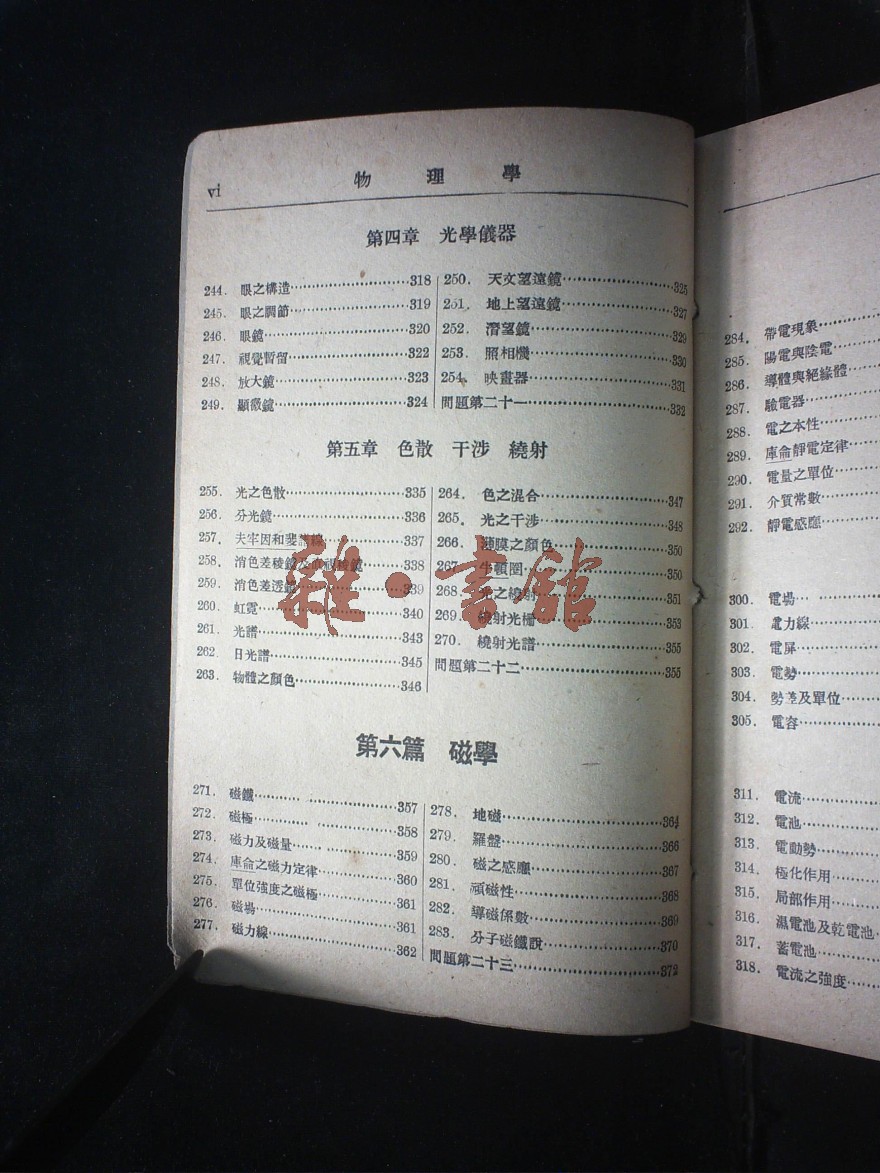 vi
物理學
第四章 光學儀器
244. 眼之構造……318
245. 眼之調節……319
246. 眼鏡……320
247. 視覺暫留……322
248. 放大鏡……323
249. 顯微鏡……324
250. 天文望遠鏡……325
251. 地上望遠鏡……327
252. 潛望鏡……329
253. 照相機……330
254. 映畫器……331
問題第二十一……332
第五章 色散 干涉 繞射
255. 光之色散……335
256. 分光鏡……336
257. 夫牢因和斐譜線……337
258. 消色差稜鏡及直視稜鏡……338
259. 消色差透鏡……339
260. 虹霓……340
261. 光譜……343
262. 日光譜……345
263. 物體之顏色……346
264. 色之混合……347
265. 光之干涉……348
266. 薄膜之顏色……350
267. 牛頓圈……350
268. 光之繞射……351
269. 繞射光柵……353
270. 繞射光譜……355
問題第二十二……355
第六篇 磁學
271. 磁鐵……357
272. 磁極……358
273. 磁力及磁量……359
274. 庫侖之磁力定律……360
275. 單位強度之磁極……361
276. 磁場……361
277. 磁力線……362
278. 地磁……364
279. 羅盤……366
280. 磁之感應……367
281. 頑磁性……368
282. 導磁係數……369
283. 分子磁鐵說……370
問題第二十三……372
雜·書館
284. 帶電現象……
285. 陽電與陰電……
286. 導體與絕緣體……
287. 驗電器……
288. 電之本性……
289. 庫侖靜電定律……
290. 電量之單位……
291. 介質常數……
292. 靜電感應……
300. 電場……
301. 電力線……
302. 電屏……
303. 電勢……
304. 勢差及單位……
305. 電容……
311. 電流……
312. 電池……
313. 電動勢……
314. 極化作用……
315. 局部作用……
316. 濕電池及乾電池……
317. 蓄電池……
318. 電流之強度……